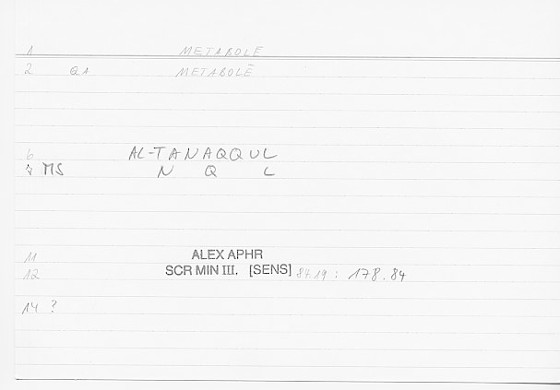 1 METABOLE
2 QA METABOLĒ
6 AL-TANAQQUL
7 MS N Q L
11 ALEX APHR
12 SCR MIN III. [SENS] 87.19 : 178.84
14 ?